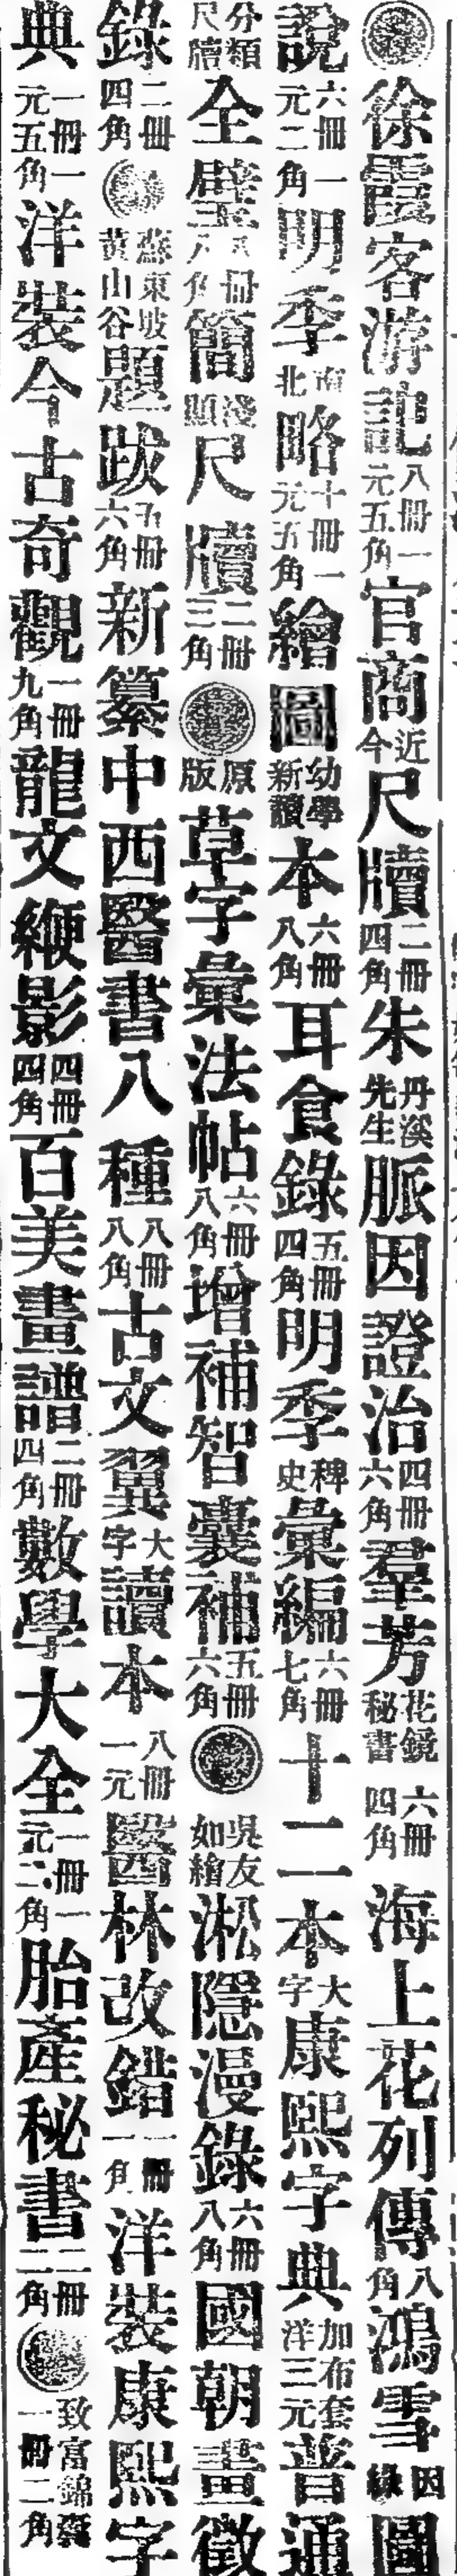 徐霞客游記八冊一元五角官商近今尺牘二冊四角朱丹溪先生脈因證治四冊六角羣芳花鏡秘書六冊四角海上花列傳八角鴻雪因緣圖
說六冊一元二角明季南北略十冊一元五角繪圖幼學新讀本六冊八角耳食錄五冊四角明季稗史彙編六冊七角十二本大字康熙字典加布套洋三元普通
分類尺牘全璧八冊八角簡淺顯尺牘二冊三角原版草字彙法帖六冊八角增補智囊補五冊六角吳友如繪淞隱漫錄六冊八角國朝畫徵
錄二冊四角蘇東坡黃山谷題跋五冊六角新纂中西醫書八種八冊八角古文翼大字讀本八冊一元醫林改錯一冊一角洋裝康熙字
典一冊一元五角洋裝今古奇觀一冊九角龍文鞭影四冊四角百美畫譜二冊四角數學大全一冊一元二角胎產秘書二冊二角致富錦囊一冊二角